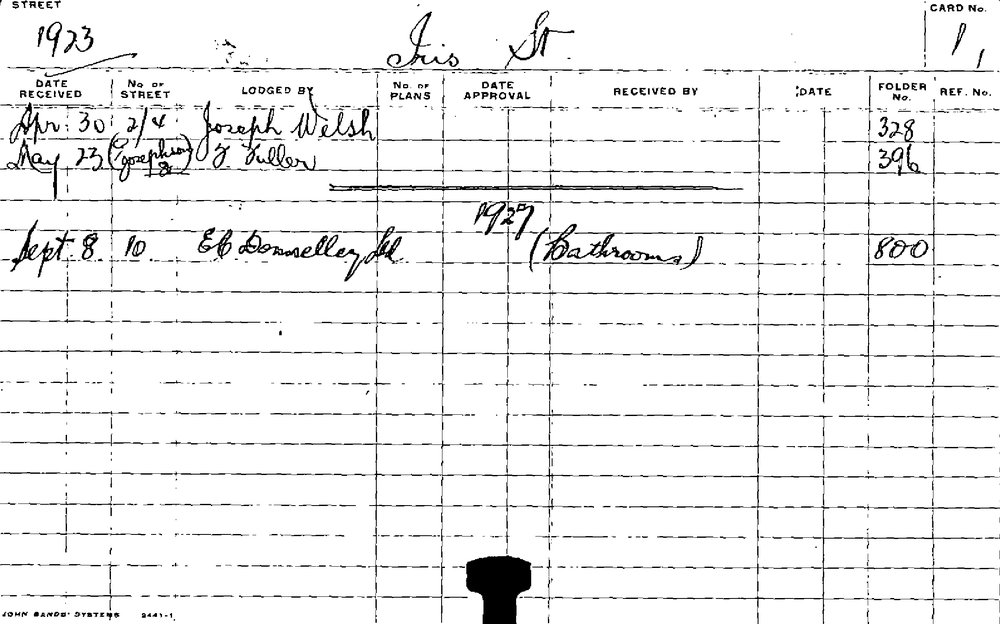 STREET
CARD No.
1923 Iris St 1,
DATE RECEIVED No OF STREET LODGED BY No. OF PLANS DATE APPROVAL RECEIVED BY DATE FOLDER No. REF. No.
Apr 30 2/4 Joseph Welsh 328
May 23 (Josephson 18) F Fuller 396
1927
Sept 8 10 EC Donnelley Ltd (Bathrooms) 800
JOHN SANDS' SYSTEMS 2441-1